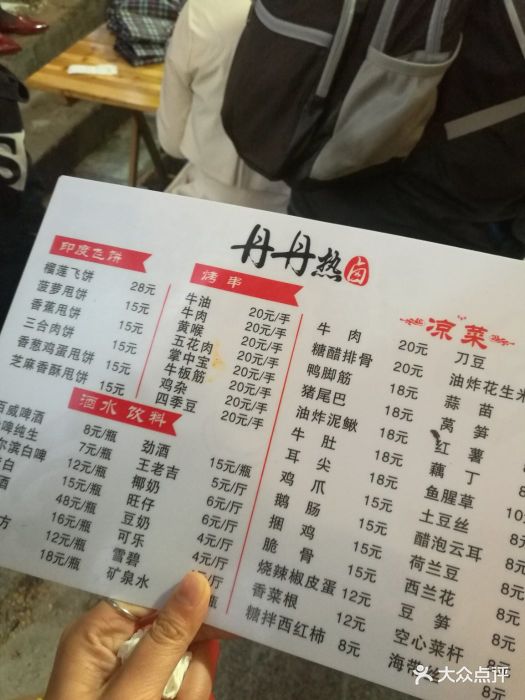 丹丹热卤
印度飞饼
榴莲飞饼 28元
菠萝甩饼 15元
香蕉甩饼 15元
三合肉饼 15元
香葱鸡蛋甩饼 15元
芝麻香酥甩饼 15元
烤串
牛油 20元/手
牛肉 20元/手
黄喉 20元/手
五花肉 20元/手
掌中宝 20元/手
牛板筋 20元/手
鸡杂 20元/手
四季豆 20元/手
酒水饮料
百威啤酒 8元/瓶
啤纯生 7元/瓶
尔滨白啤 12元/瓶
白 15元/瓶
酒 48元/瓶
16元/瓶
方 12元/瓶
18元/瓶
劲酒 15元/瓶
王老吉 5元/厅
椰奶 6元/厅
旺仔 6元/厅
豆奶 4元/厅
可乐 4元/厅
雪碧
矿泉水
凉菜
牛肉 20元
糖醋排骨 20元
鸭脚筋 18元
猪尾巴 18元
油炸泥鳅 18元
牛肚 18元
耳尖 18元
鸡爪 18元
鹅肠 18元
捆鸡 15元
脆骨 15元
烧辣椒皮蛋 12元
香菜根 12元
糖拌西红柿 8元
刀豆
油炸花生米
蒜苗
莴笋
红薯
藕丁
鱼腥草
土豆丝
醋泡云耳
荷兰豆 8元
西兰花 8元
豆笋 8元
空心菜杆 8元
海带
8元
大众点评